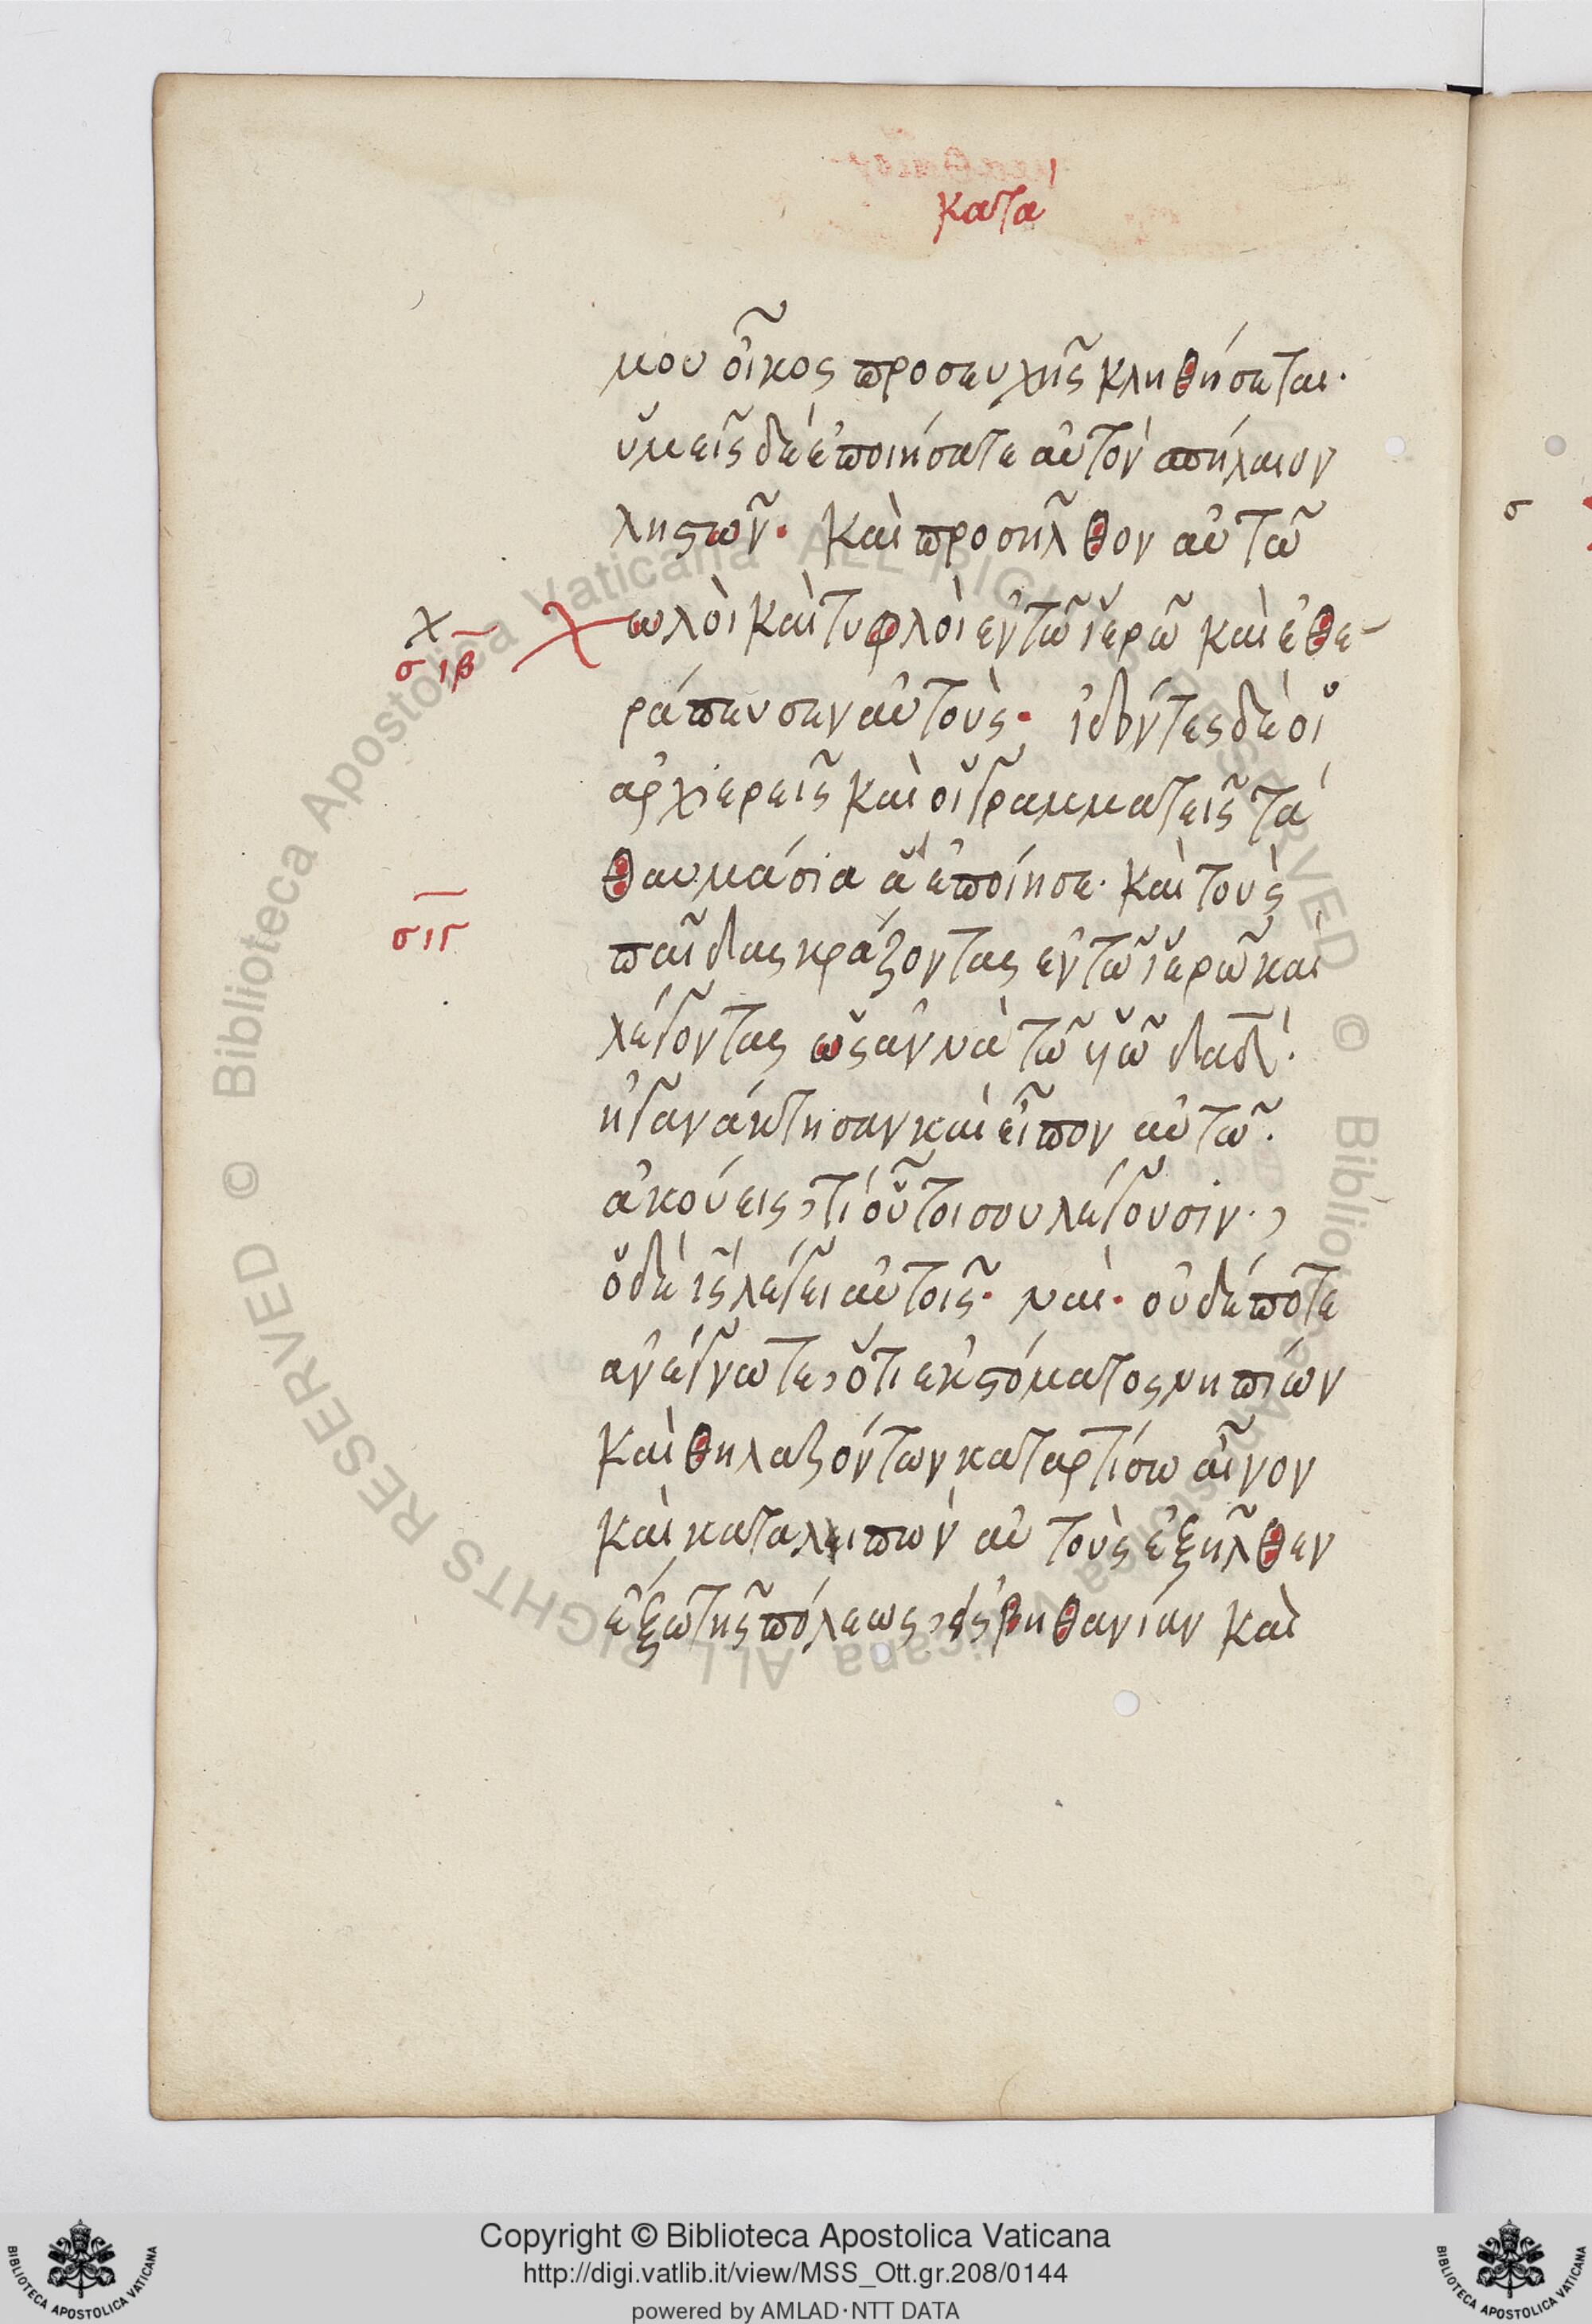 κατα
μου οἶκος προσευχῆς κληθήσεται·
ὑμεῖς δὲ ἐποιήσατε αὐτὸν σπήλαιον
λῃστῶν· Καὶ προσῆλθον αὐτῶ
χ
σιβ
Χωλοὶ καὶ τυφλοὶ ἐν τῶ ἱερῶ καὶ ἐθε-
ράπευσεν αὐτούς· ἰδόντες δὲ οἱ
ἀρχιερεῖς καὶ οἱ γραμματεῖς τὰ
θαυμάσια ἃ ἐποίησε· καὶ τοὺς
σιγ
παῖδας κράζοντας ἐν τῶ ἱερῶ καὶ
λέγοντας ὡσαννὰ τῶ υἱῶ δαδ·
ἠγανάκτησαν καὶ εἶπον αὐτῶ·
ἀκούεις, τί οὗτοί σου λέγουσιν·,
ὁ δὲ ις λέγει αὐτοῖς· ναί· οὐδέποτε
ἀνέγνωτε, ὅτι ἐκ στόματος νηπίων
καὶ θηλαζόντων καταρτίσω αἶνον
καὶ καταλειπὼν αὐτοὺς ἐξῆλθεν
ἔξω τῆς πόλεως, εἰς βηθανίαν καὶ
σ
Copyright © Biblioteca Apostolica Vaticana
http://digi.vatlib.it/view/MSS_Ott.gr.208/0144
powered by AMLAD·NTT DATA
BIBLIOTECA APOSTOLICA VATICANA
BIBLIOTECA APOSTOLICA VATICANA
© Biblioteca Apostolica Vaticana ALL RIGHTS RESERVED © Biblioteca Apostolica Vaticana ALL RIGHTS RESERVED